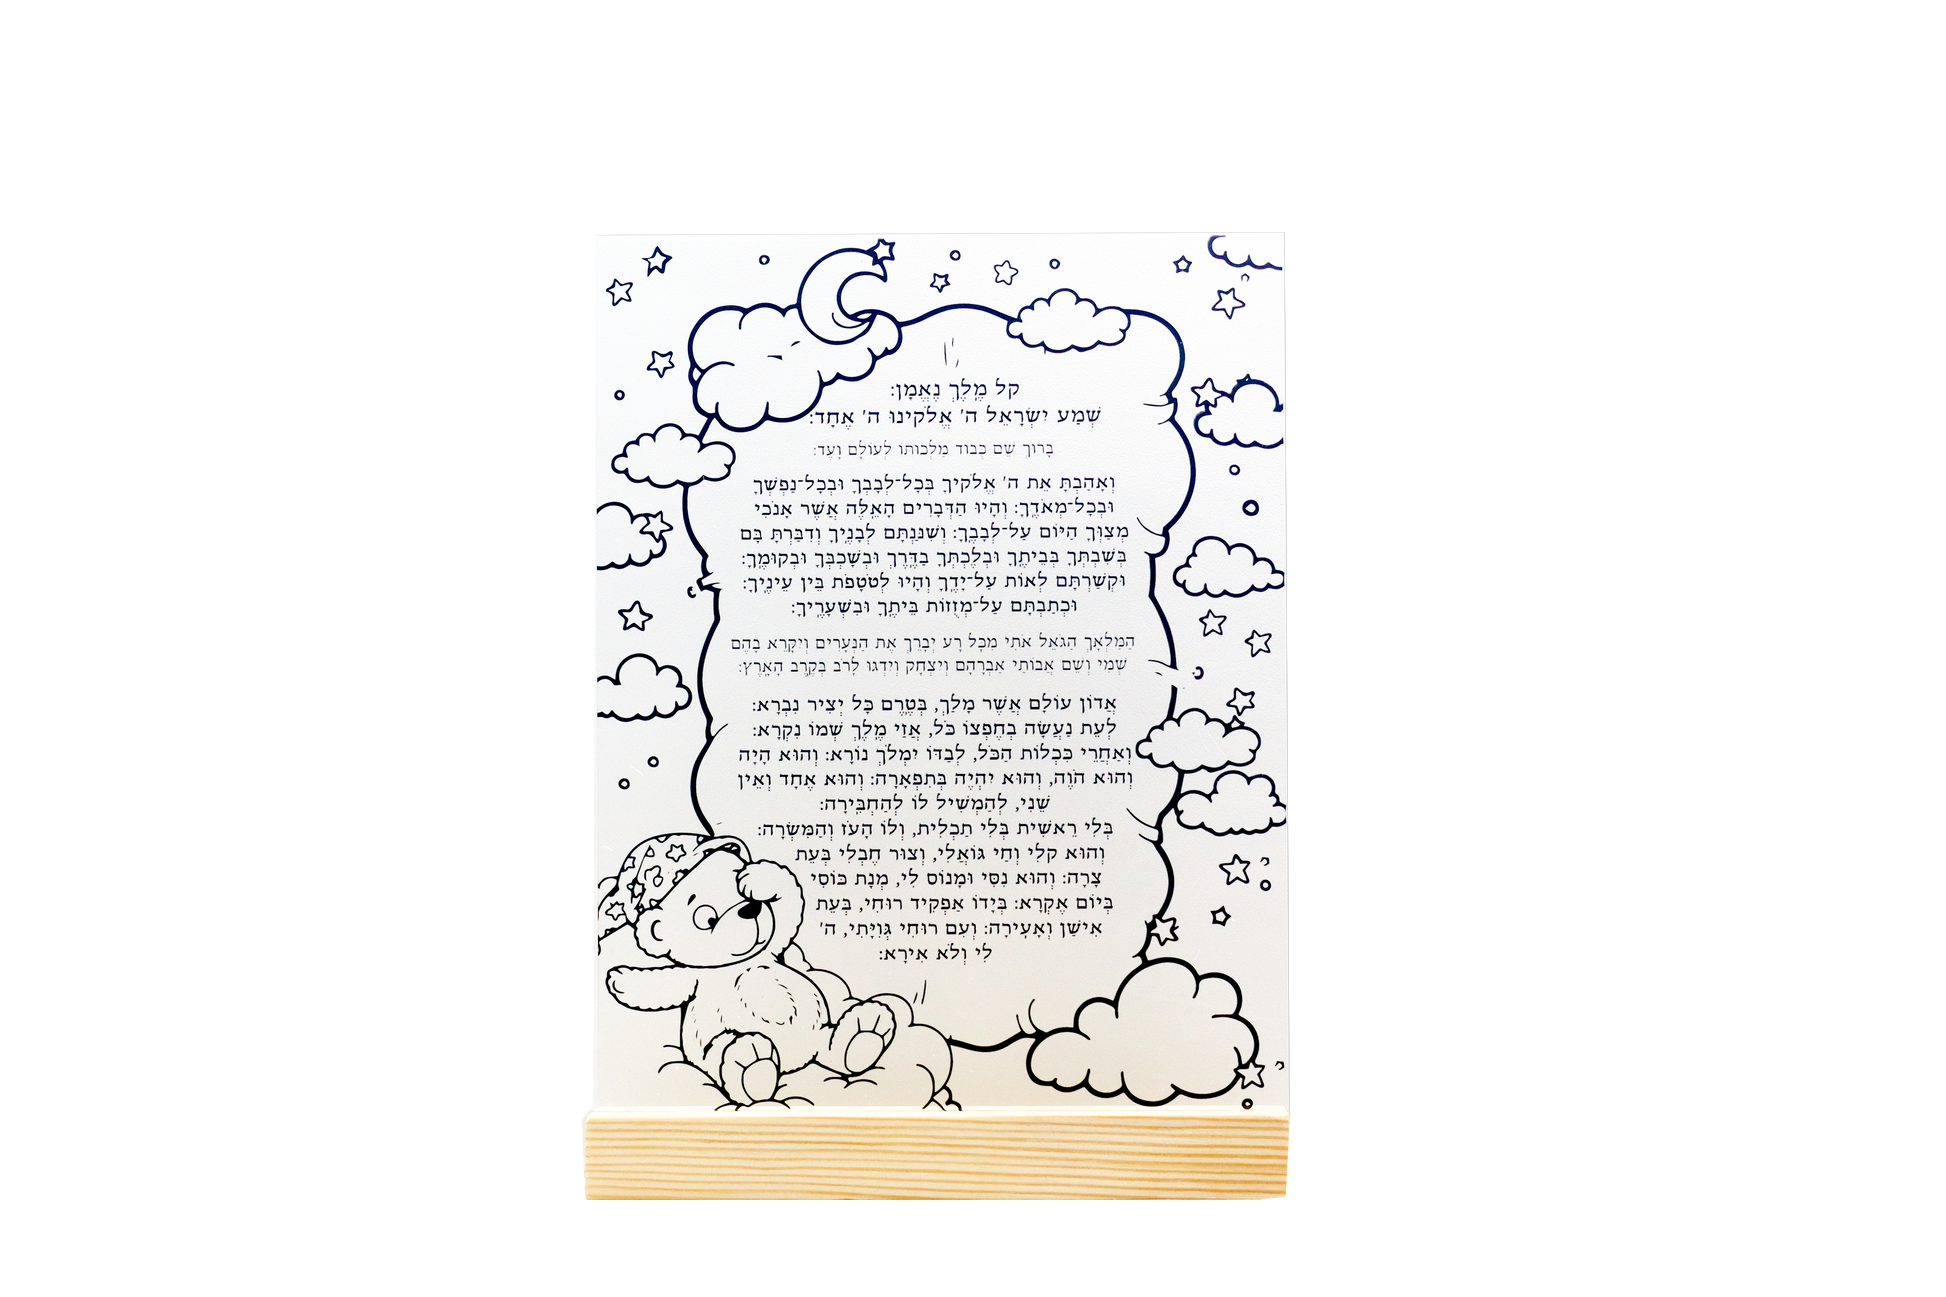 קל מֶלֶךְ נֶאֱמָן:
שְׁמַע יִשְׂרָאֵל ה' אֱלֹקינוּ ה' אֶחָד:
בָּרוּךְ שֵׁם כְּבוֹד מַלְכוּתוֹ לְעוֹלָם וָעֶד:
וְאָהַבְתָּ אֵת ה' אֱלֹקיךָ בְּכָל־לְבָבְךָ וּבְכָל־נַפְשְׁךָ
וּבְכָל־מְאֹדֶךָ: וְהָיוּ הַדְּבָרִים הָאֵלֶּה אֲשֶׁר אָנֹכִי
מְצַוְּךָ הַיּוֹם עַל־לְבָבֶךָ: וְשִׁנַּנְתָּם לְבָנֶיךָ וְדִבַּרְתָּ בָּם
בְּשִׁבְתְּךָ בְּבֵיתֶךָ וּבְלֶכְתְּךָ בַדֶּרֶךְ וּבְשָׁכְבְּךָ וּבְקוּמֶךָ:
וּקְשַׁרְתָּם לְאוֹת עַל־יָדֶךָ וְהָיוּ לְטֹטָפֹת בֵּין עֵינֶיךָ:
וּכְתַבְתָּם עַל־מְזֻזוֹת בֵּיתֶךָ וּבִשְׁעָרֶיךָ:
הַמַּלְאָךְ הַגֹּאֵל אֹתִי מִכָּל רָע יְבָרֵךְ אֶת הַנְּעָרִים וְיִקָּרֵא בָהֶם
שְׁמִי וְשֵׁם אֲבוֹתַי אַבְרָהָם וְיִצְחָק וְיִדְגּוּ לָרֹב בְּקֶרֶב הָאָרֶץ:
אֲדוֹן עוֹלָם אֲשֶׁר מָלַךְ, בְּטֶרֶם כָּל יְצִיר נִבְרָא:
לְעֵת נַעֲשָׂה בְחֶפְצוֹ כֹּל, אֲזַי מֶלֶךְ שְׁמוֹ נִקְרָא:
וְאַחֲרֵי כִּכְלוֹת הַכֹּל, לְבַדּוֹ יִמְלֹךְ נוֹרָא: וְהוּא הָיָה
וְהוּא הֹוֶה, וְהוּא יִהְיֶה בְּתִפְאָרָה: וְהוּא אֶחָד וְאֵין
שֵׁנִי, לְהַמְשִׁיל לוֹ לְהַחְבִּירָה:
בְּלִי רֵאשִׁית בְּלִי תַכְלִית, וְלוֹ הָעֹז וְהַמִּשְׂרָה:
וְהוּא קלִי וְחַי גּוֹאֲלִי, וְצוּר חֶבְלִי בְּעֵת
צָרָה: וְהוּא נִסִּי וּמָנוֹס לִי, מְנָת כּוֹסִי
בְּיוֹם אֶקְרָא: בְּיָדוֹ אַפְקִיד רוּחִי, בְּעֵת
אִישַׁן וְאָעִירָה: וְעִם רוּחִי גְּוִיָּתִי, ה'
לִי וְלֹא אִירָא: